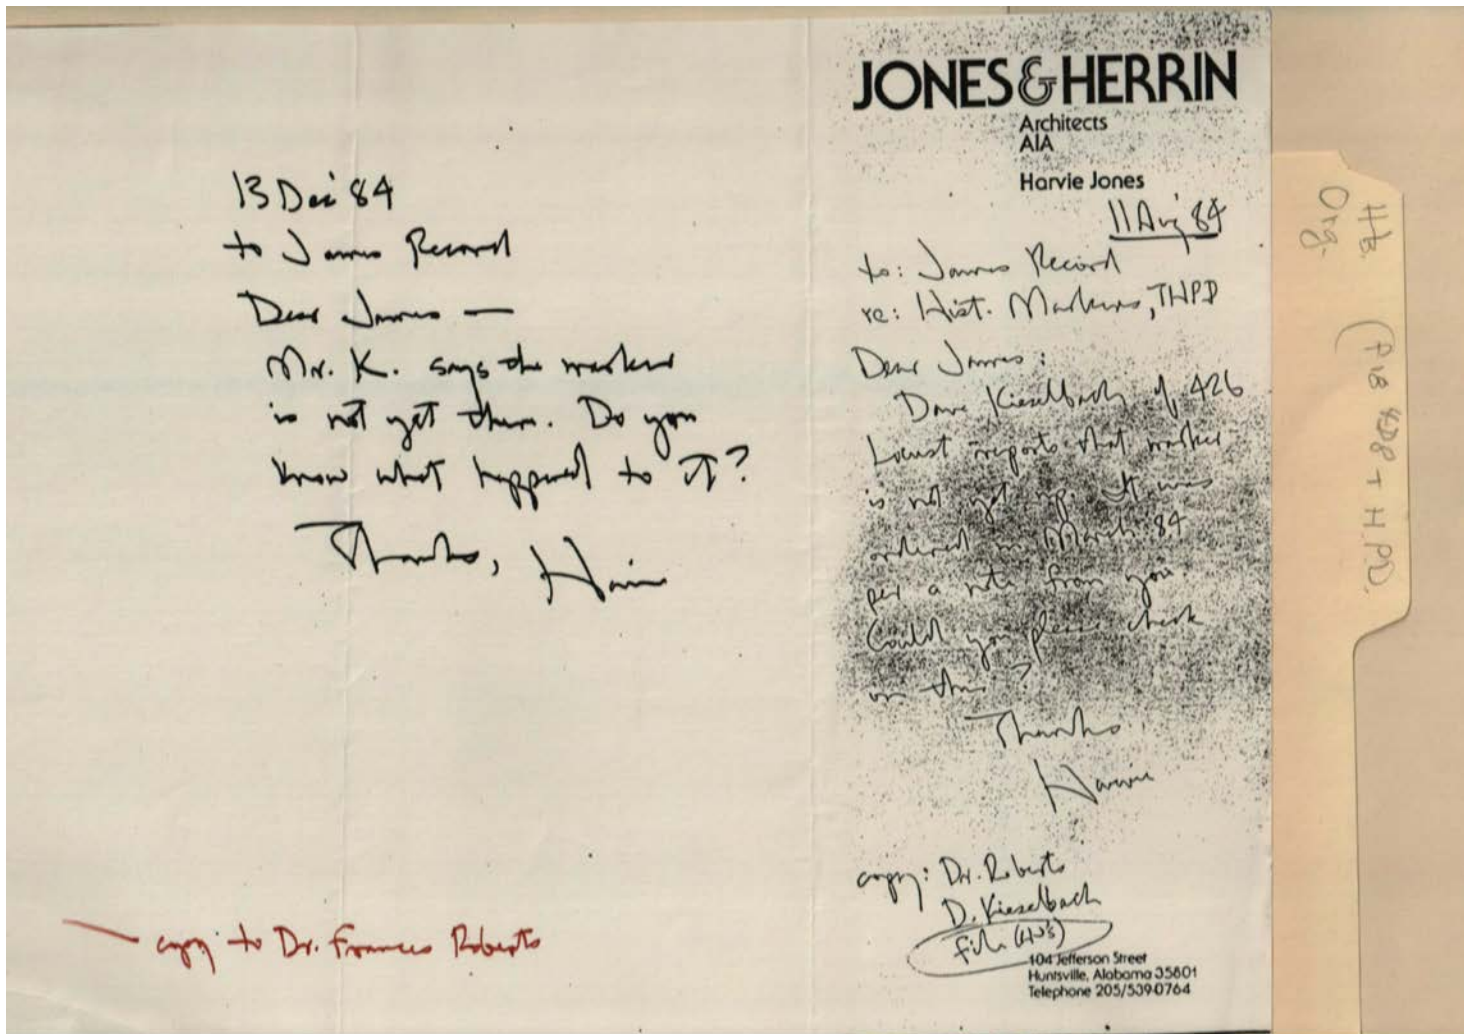 13 Dec '84
to James Record
Dear James —
Mr. K. says the marker
is not yet there. Do you
know what happened to it?
Thanks, Harvie
copy to Dr. Frances Roberts
JONES & HERRIN
Architects
AIA
Harvie Jones
11 Aug '84
to: James Record
re: Hist. Markers, THPD
Dear James:
Dave Kieselbach of 426
Locust reports that marker
is not yet up. It was
ordered in March '84
per a note from you.
Could you please check
on this?
Thanks
Harvie
copy: Dr. Roberts
D. Kieselbach
file
104 Jefferson Street
Huntsville, Alabama 35801
Telephone 205/539-0764
Org.
+ H.P.D.